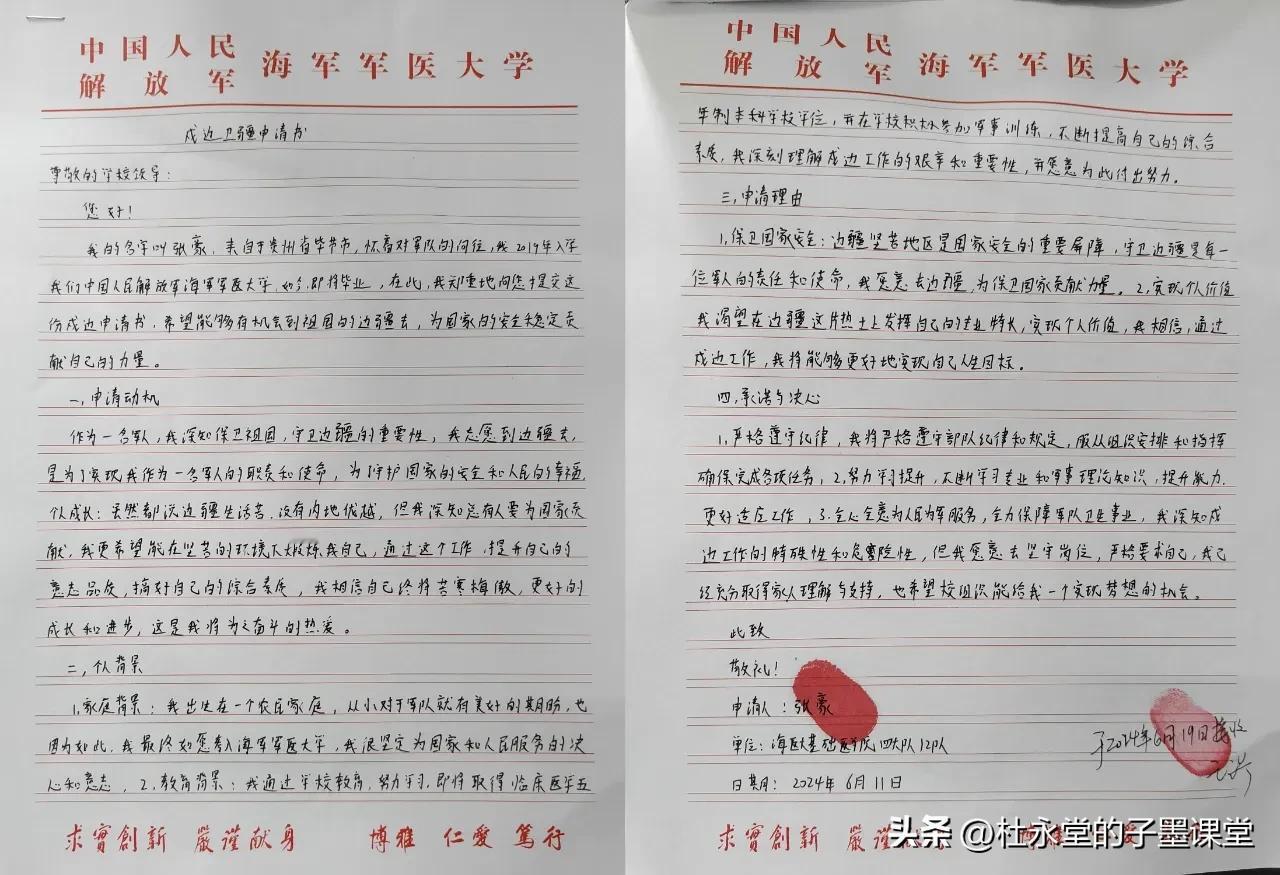 中国人民
解放军
海军军医大学
戍边卫疆申请书
尊敬的学校领导：
您好！
我的名字叫张豪，来自于贵州省毕节市，怀着对军队的向往，我2019年入学
我们中国人民解放军海军军医大学，如今，即将毕业，在此，我郑重地向您提交这
份戍边申请书，希望能够有机会到祖国的边疆去，为国家的安全稳定贡
献自己的力量。
一，申请动机
作为一名军人，我深知保卫祖国，守卫边疆的重要性，我志愿到边疆去，
是为了实现我作为一名军人的职责和使命，为了守护国家的安全和人民的幸福，
个人成长：虽然都说边疆生活苦，没有内地优越，但我深知总有人要为国家贡
献，我更希望能在坚苦的环境下煅炼我自己，通过这个工作，提升自己的
意志品质，搞好自己的综合素质，我相信自己终将苦寒梅傲，更好的
成长和进步，这是我将为之奋斗的热爱。
二，个人背景
1.家庭背景：我出生在一个农民家庭，从小对于军队就有美好的期盼，也
因为如此，我最终如愿考入海军军医大学，我很坚定为国家和人民服务的决
心和意志，2.教育背景：我通过学校教育，努力学习，即将取得临床医学五
求實創新 嚴謹献身 博雅 仁愛 篤行
中国人民
解放军
海军军医大学
年制本科学校学位，并在学校积极参加军事训练，不断提高自己的综合
素质，我深刻理解戍边工作的艰辛和重要性，并愿意为此付出努力。
三，申请理由
1.保卫国家安全：边疆坚苦地区是国家安全的重要屏障，守卫边疆是每一
位军人的责任和使命，我愿意去边疆，为保卫国家贡献力量。2.实现个人价值
我渴望在边疆这片热土上发挥自己的专业特长，实现个人价值，我相信，通过
戍边工作，我将能够更好地实现自己人生目标。
四，承诺与决心
1.严格遵守纪律，我将严格遵守部队纪律和规定，服从组织安排和指挥
确保完成各项任务，2.努力学习提升，不断学习专业和军事理论知识，提升能力，
更好适应工作，3.全心全意为人民为军服务，全力保障军队卫生事业，我深知戍
边工作的特殊性和危险性，但我愿意去坚守岗位，严格要求自己，我已
经充分取得家人理解与支持，也希望校组织能给我一个实现梦想的机会。
此致
敬礼！
申请人：张豪
单位：海医大基础医学院四大队12队
日期：2024年6月11日
于2024年6月19日接收
求實創新 嚴謹 博雅 仁愛
头条 @杜永堂的子墨课堂